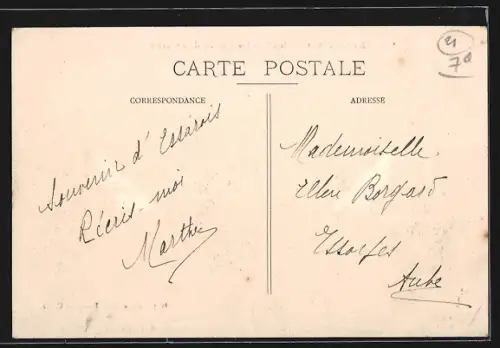 21
7d
CARTE POSTALE
CORRESPONDANCE
ADRESSE
Souvenir d'Essarois
Récris-moi
Marthe
Mademoiselle
Ellen Borgard
Essoyes
Aube